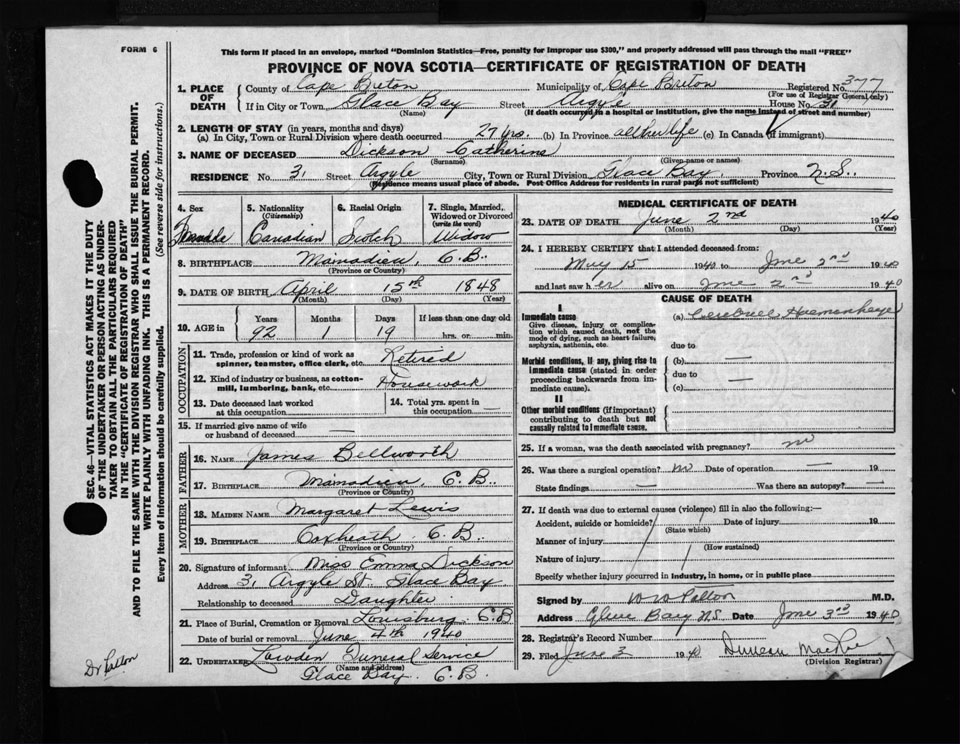 FORM 6
This form if placed in an envelope, marked "Dominion Statistics—Free, penalty for improper use $300," and properly addressed will pass through the mail "FREE"
PROVINCE OF NOVA SCOTIA—CERTIFICATE OF REGISTRATION OF DEATH
1. PLACE OF DEATH
County of Cape Breton Municipality of Cape Breton Registered No. 377
(For use of Registrar General only)
If in City or Town Glace Bay Street Argyle House No. 31
(Name) (If death occurred in a hospital or institution, give the name instead of street and number)
2. LENGTH OF STAY (in years, months and days)
(a) In City, Town or Rural Division where death occurred 27 yrs. (b) In Province all her life (c) In Canada (if immigrant)
3. NAME OF DECEASED Dickson Catherine
(Surname) (Given name or names)
RESIDENCE No. 31 Street Argyle City, Town or Rural Division Glace Bay Province N.S.
(Residence means usual place of abode. Post Office Address for residents in rural parts not sufficient)
4. Sex Female
5. Nationality (Citizenship) Canadian
6. Racial Origin Scotch
7. Single, Married, Widowed or Divorced (write the word) Widow
8. BIRTHPLACE C.B.
(Province or Country)
9. DATE OF BIRTH April 15th 1848
(Month) (Day) (Year)
10. AGE in Years Months Days If less than one day old
92 1 19 hrs. or min.
OCCUPATION
11. Trade, profession or kind of work as spinner, teamster, office clerk, etc. Retired
12. Kind of industry or business, as cotton-mill, lumbering, bank, etc. Housework
13. Date deceased last worked at this occupation
14. Total yrs. spent in this occupation —
15. If married give name of wife or husband of deceased
FATHER
16. NAME James Bellworth
17. BIRTHPLACE C.B.
(Province or Country)
MOTHER
18. MAIDEN NAME Margaret Lewis
19. BIRTHPLACE Coxheath C.B.
(Province or Country)
20. Signature of informant Miss Emma Dickson
Address 31 Argyle St. Glace Bay
Relationship to deceased Daughter
21. Place of Burial, Cremation or Removal Louisburg C.B
Date of burial or removal June 4th 1940
22. UNDERTAKER Lowden Funeral Service
(Name and address)
Glace Bay C.B.
MEDICAL CERTIFICATE OF DEATH
23. DATE OF DEATH June 2nd 1940
(Month) (Day) (Year)
24. I HEREBY CERTIFY that I attended deceased from:
May 15 1940 to June 2nd 1940
and last saw her alive on June 2nd 1940
CAUSE OF DEATH
I
Immediate cause
Give disease, injury or complication which caused death, not the mode of dying, such as heart failure, asphyxia, asthenia, etc.
(a) Cerebral Haemorrhage
due to
Morbid conditions, if any, giving rise to immediate cause (stated in order proceeding backwards from immediate cause).
(b) —
due to
(c) —
II
Other morbid conditions (if important) contributing to death but not causally related to immediate cause.
25. If a woman, was the death associated with pregnancy? no
26. Was there a surgical operation? no Date of operation — 19
State findings — Was there an autopsy? —
27. If death was due to external causes (violence) fill in also the following:—
Accident, suicide or homicide? Date of injury 19
(State which)
Manner of injury
(How sustained)
Nature of injury
Specify whether injury occurred in industry, in home, or in public place
Signed by M.D.
Address Glace Bay N.S. Date June 3rd 1940
28. Registrar's Record Number
29. Filed June 3 1940 Duncan
(Division Registrar)
SEC. 46—VITAL STATISTICS ACT MAKES IT THE DUTY
OF THE UNDERTAKER OR PERSON ACTING AS UNDER-
TAKER TO OBTAIN ALL THE PARTICULARS REQUIRED
IN THE "CERTIFICATE OF REGISTRATION OF DEATH"
AND TO FILE THE SAME WITH THE DIVISION REGISTRAR WHO SHALL ISSUE THE BURIAL PERMIT.
WRITE PLAINLY WITH UNFADING INK. THIS IS A PERMANENT RECORD.
Every item of Information should be carefully supplied. (See reverse side for instructions.)